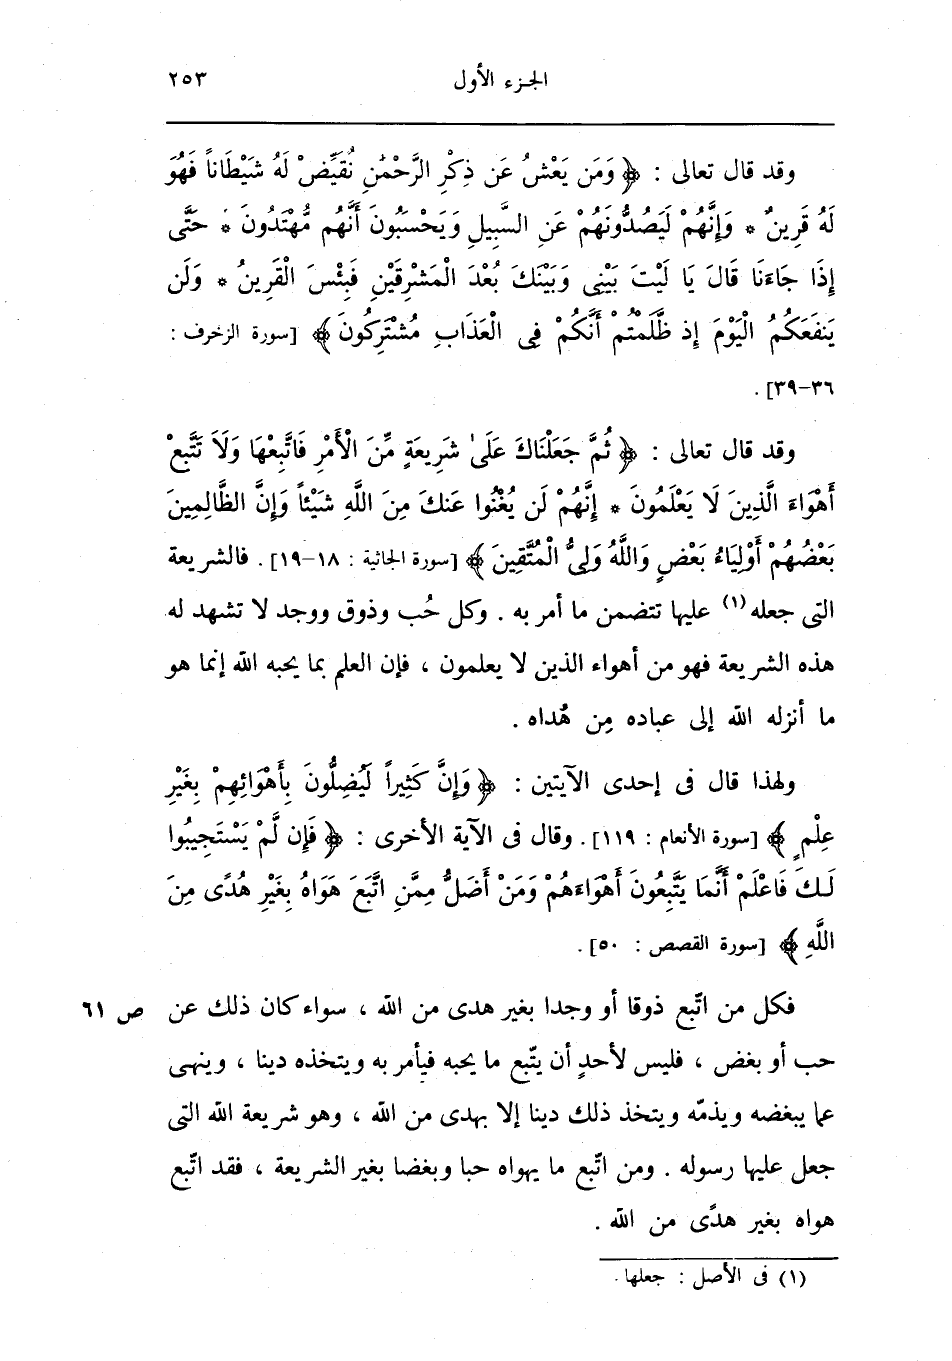 الجزء الأول ٢٥٣
وقد قال تعالى : ﴿ وَمَن يَعْشُ عَن ذِكْرِ الرَّحْمَٰنِ نُقَيِّضْ لَهُ شَيْطَاناً فَهُوَ
لَهُ قَرِينٌ * وَإِنَّهُمْ لَيَصُدُّونَهُمْ عَنِ السَّبِيلِ وَيَحْسَبُونَ أَنَّهُم مُّهْتَدُونَ * حَتَّى
إِذَا جَاءَنَا قَالَ يَا لَيْتَ بَيْنِى وَبَيْنَكَ بُعْدَ الْمَشْرِقَيْنِ فَبِئْسَ الْقَرِينُ * وَلَن
يَنفَعَكُمُ الْيَوْمَ إِذ ظَّلَمْتُمْ أَنَّكُمْ فِى الْعَذَابِ مُشْتَرِكُونَ ﴾ [سورة الزخرف :
٣٦-٣٩] .
وقد قال تعالى : ﴿ ثُمَّ جَعَلْنَاكَ عَلَىٰ شَرِيعَةٍ مِّنَ الْأَمْرِ فَاتَّبِعْهَا وَلَا تَتَّبِعْ
أَهْوَاءَ الَّذِينَ لَا يَعْلَمُونَ * إِنَّهُمْ لَن يُغْنُوا عَنكَ مِنَ اللَّهِ شَيْئاً وَإِنَّ الظَّالِمِينَ
بَعْضُهُمْ أَوْلِيَاءُ بَعْضٍ وَاللَّهُ وَلِىُّ الْمُتَّقِينَ ﴾ [سورة الجاثية : ١٨-١٩] . فالشريعة
التى جعله(١) عليها تتضمن ما أمر به . وكل حُب وذوق ووجد لا تشهد له
هذه الشريعة فهو من أهواء الذين لا يعلمون ، فإن العلم بما يحبه الله إنما هو
ما أنزله الله إلى عباده مِن هُداه .
ولهذا قال فى إحدى الآيتين : ﴿ وَإِنَّ كَثِيراً لَيُضِلُّونَ بِأَهْوَائِهِمْ بِغَيْرِ
عِلْمٍ ﴾ [سورة الأنعام : ١١٩] . وقال فى الآية الأخرى : ﴿ فَإِن لَّمْ يَسْتَجِيبُوا
لَكَ فَاعْلَمْ أَنَّمَا يَتَّبِعُونَ أَهْوَاءَهُمْ وَمَنْ أَضَلُّ مِمَّنِ اتَّبَعَ هَوَاهُ بِغَيْرِ هُدًى مِنَ
اللَّهِ ﴾ [سورة القصص : ٥٠] .
فكل من اتّبع ذوقا أو وجدا بغير هدى من الله ، سواء كان ذلك عن ص ٦١
حب أو بغض ، فليس لأحدٍ أن يتّبع ما يحبه فيأمر به ويتخذه دينا ، وينهى
عما يبغضه ويذمّه ويتخذ ذلك دينا إلا بهدى من الله ، وهو شريعة الله التى
جعل عليها رسوله . ومن اتّبع ما يهواه حبا وبغضا بغير الشريعة ، فقد اتّبع
هواه بغير هدًى من الله .
(١) فى الأصل : جعلها .